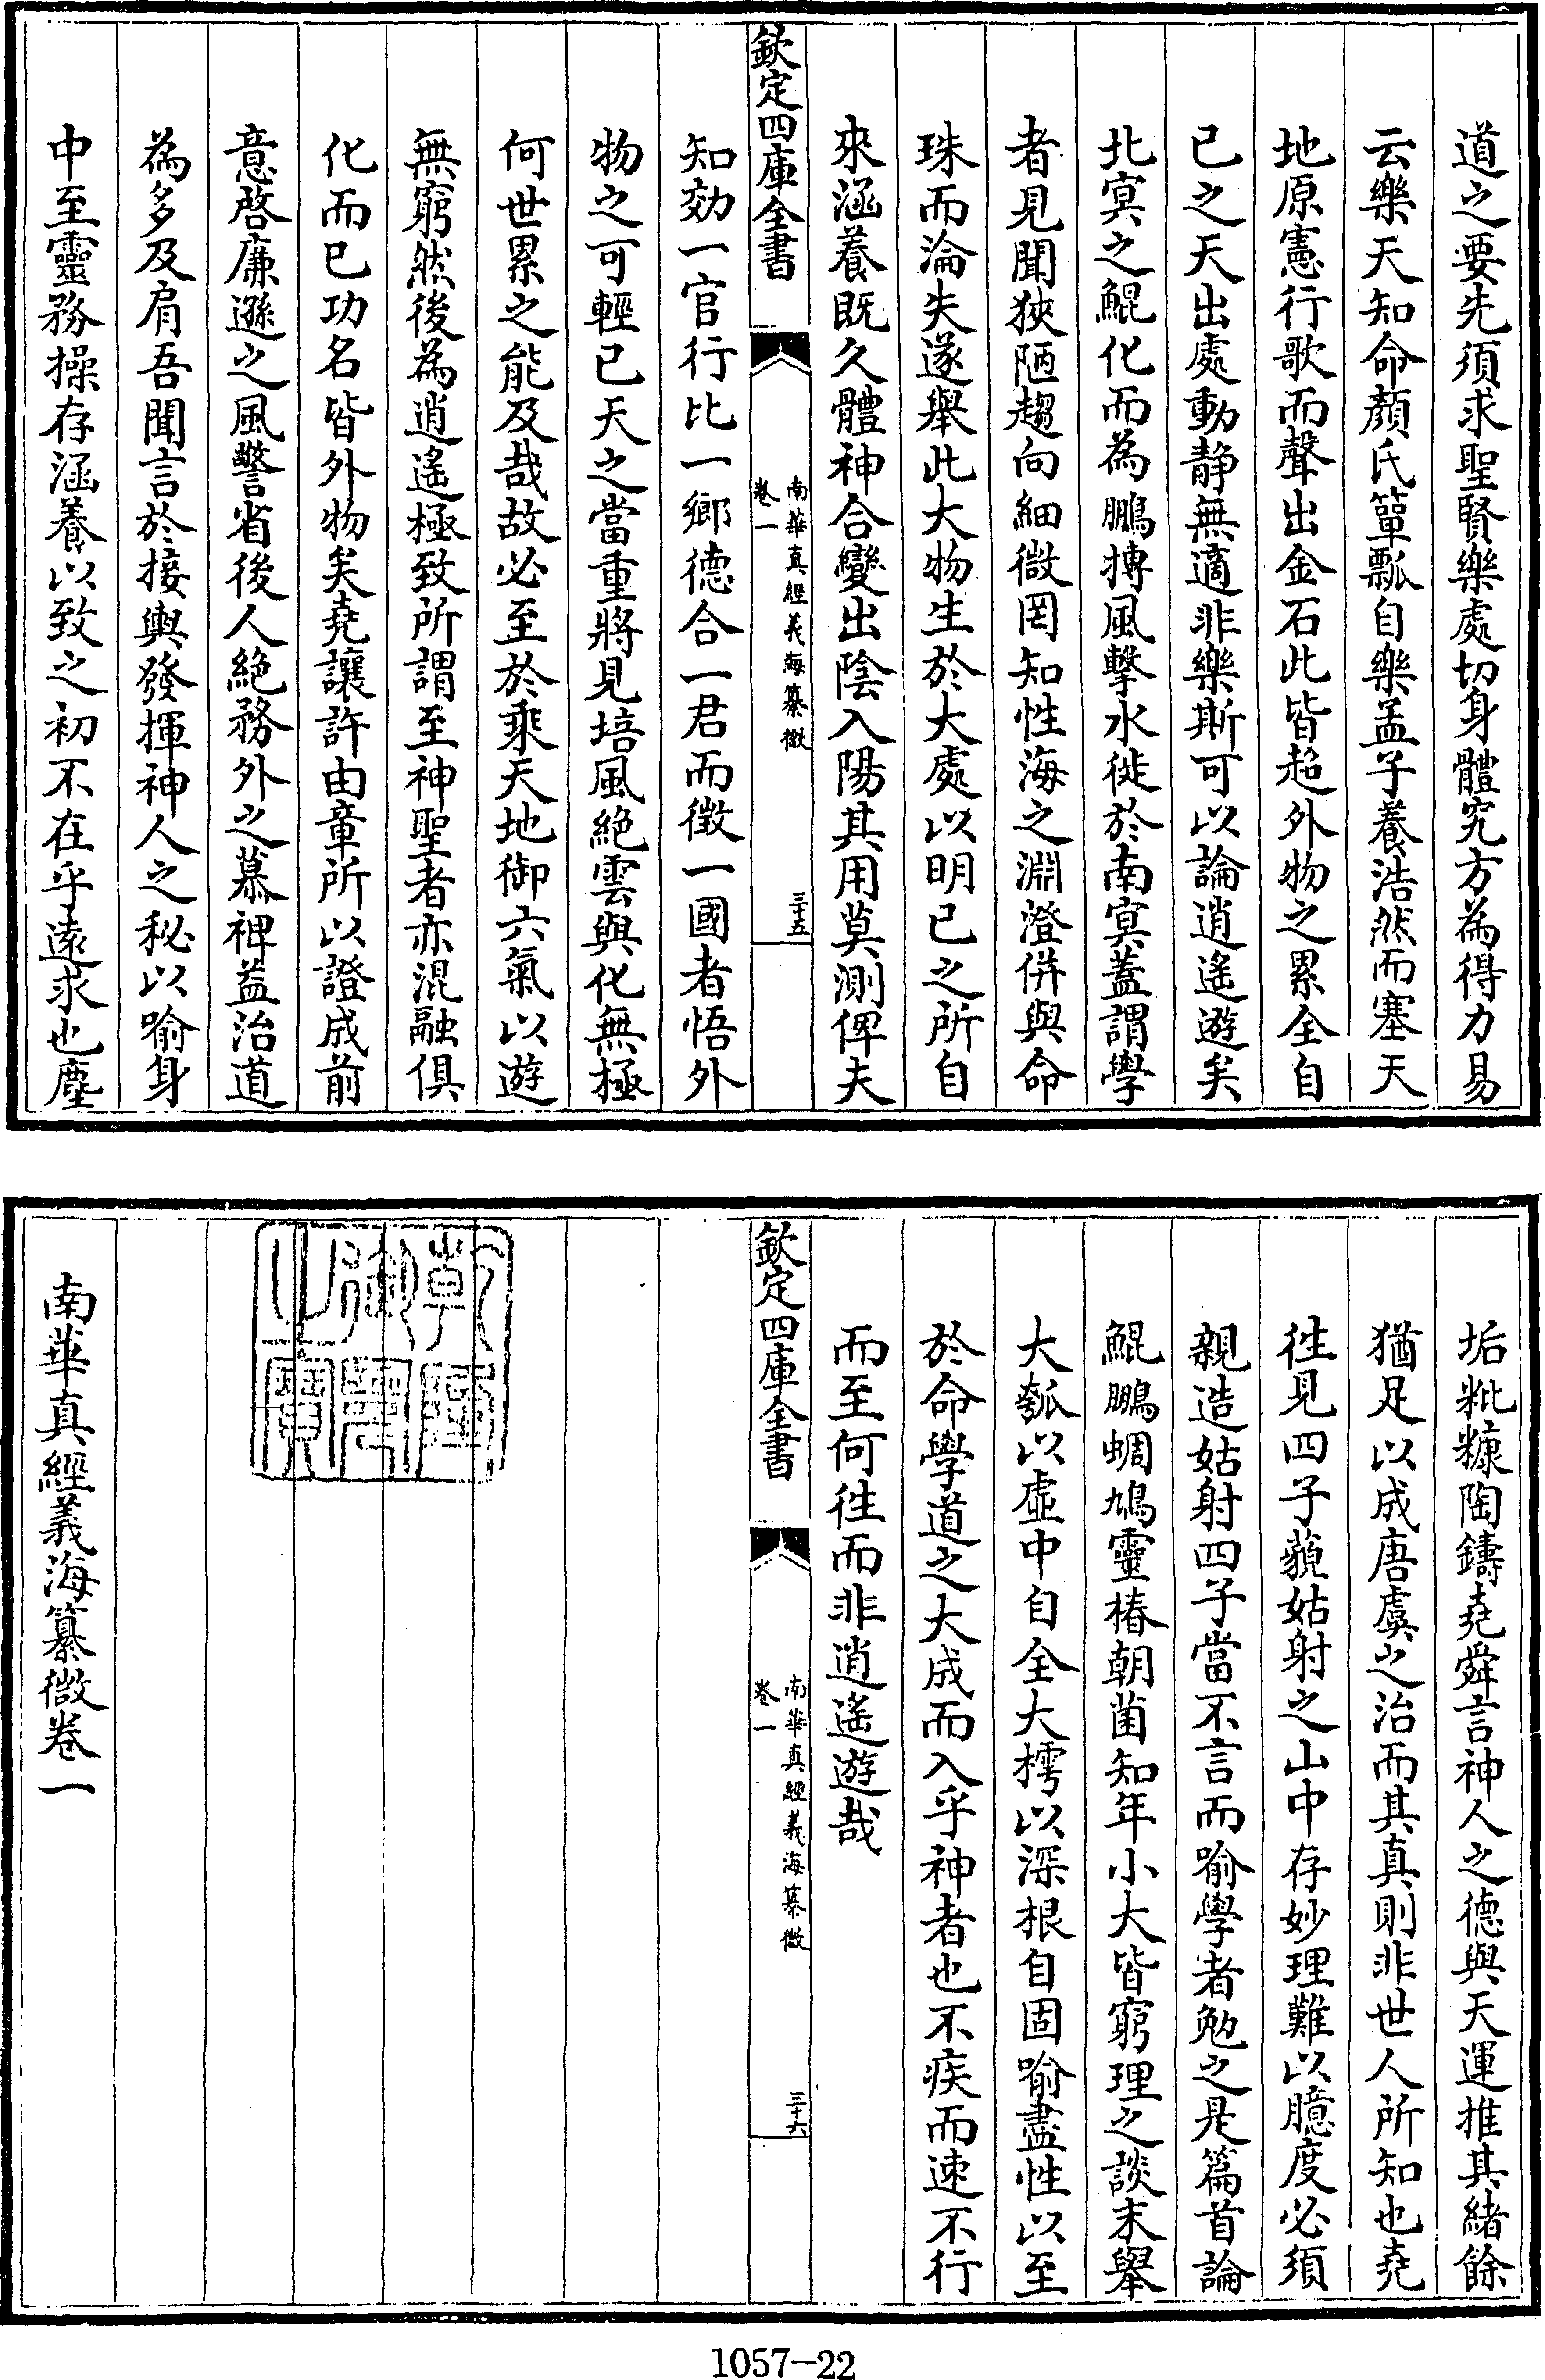 道之要先須求聖賢樂處切身體究方為得力易
云樂天知命顏氏簞瓢自樂孟子養浩然而塞天
地原憲行歌而聲出金石此皆超外物之累全自
已之天出處動靜無適非樂斯可以論逍遙遊矣
北㝠之鯤化而為鵬摶風擊水徙於南㝠蓋謂學
者見聞狹陋趨向細微罔知性海之淵澄併與命
珠而淪失遂舉此大物生於大處以明已之所自
來涵養既久體神合變出陰入陽其用莫測俾夫
欽定四庫全書
南華真經義海纂微
卷一
三十五
知効一官行比一鄉德合一君而徵一國者悟外
物之可輕已天之當重將見培風絕雲與化無極
何世累之能及哉故必至於乘天地御六氣以遊
無窮然後為逍遙極致所謂至神聖者亦混融俱
化而已功名皆外物矣堯讓許由章所以證成前
意啓廉遜之風警省後人絕務外之慕裨益治道
為多及肩吾聞言於接輿發揮神人之秘以喻身
中至靈務操存涵養以致之初不在乎遠求也塵
垢粃糠陶鑄堯舜言神人之德與天運推其緒餘
猶足以成唐虞之治而其真則非世人所知也堯
徃見四子藐姑射之山中存妙理難以臆度必須
親造姑射四子當不言而喻學者勉之是篇首論
鯤鵬蜩鳩靈椿朝菌知年小大皆窮理之談末舉
大瓠以虛中自全大樗以深根自固喻盡性以至
於命學道之大成而入乎神者也不疾而速不行
而至何徃而非逍遙遊哉
欽定四庫全書
南華真經義海纂微
卷一
三十六
乾隆御覽之寶
南華真經義海纂微卷一
1057-22